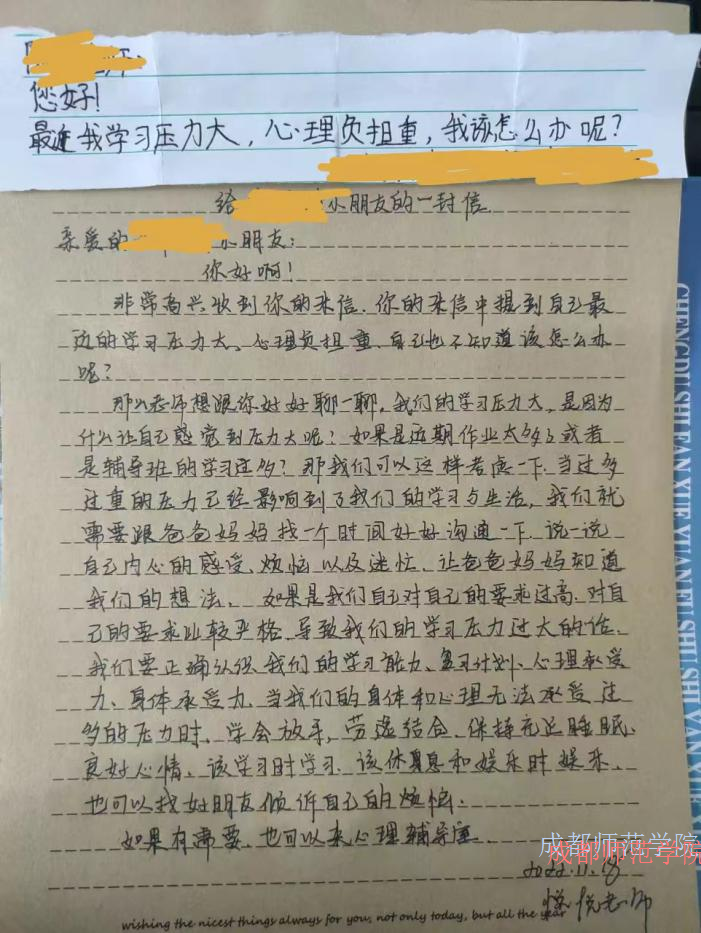 您好!
最近我学习压力大，心理负担重，我该怎么办呢?
给 小朋友的一封信
亲爱的 小朋友:
你好啊!
非常高兴收到你的来信.你的来信中提到自己最
边的学习压力大、心理负担重、自己也不知道该怎么办
呢?
那么老师想跟你好好聊一聊,我们的学习压力大,是因为
什么让自己感觉到压力大呢? 如果是近期作业太多了或者
是辅导班的学习过多? 那我们可以这样考虑一下,当过多
过重的压力已经影响到了我们的学习与生活,我们就
需要跟爸爸妈妈找一个时间好好沟通一下,说一说
自己内心的感受、烦恼以及迷忙、让爸爸妈妈知道
我们的想法。 如果是我们自己对自己的要求过高、对自
己的要求比较严格、导致我们的学习压力过大的话、
我们要正确认识我们的学习能力、复习计划、心理承受
力、身体承受力、当我们的身体和心理无法承受过
多的压力时、学会放手,劳逸结合、保持充足睡眠、
良好心情、该学习时学习、该休息和娱乐时娱乐、
也可以找好朋友倾诉自己的烦恼.
如果有需要、也可以来心理辅导室
2022.11.
悦老师
wishing the nicest things always for you, not only today, but all the year
CHENGDU SHI FAN XUE YUAN FU SHU SHI YAN XUE
成都师范学院
成都师范学院